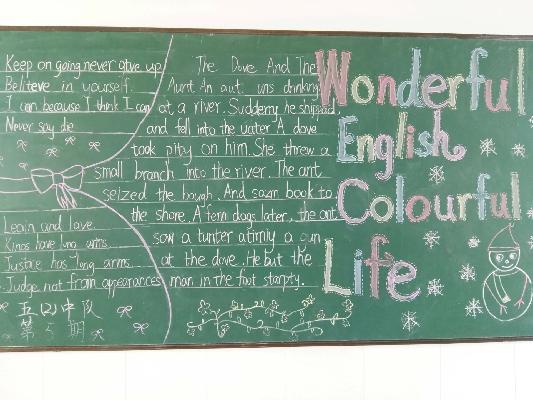 Keep on going never give up
Beliteve in yourself.
I can because I think I can
Never say die
Leain and love
Kinos have lung arms
Justice has long arms
Judge not fram appearances
五(2)中队
第5期
The Dove And The
Aunt An aut uns drinking
at a river. Suddemy he shippad
and fell into the uater A dove
took pity on him. She threw a
small branch into the river. The ant
seized the bough. And soan book to
the shore. A fern dogs later, the ant
saw a tunter atimiy a oun
at the dave. He but the
man in the foot starpty.
Wonderful
English
Colourful
Life